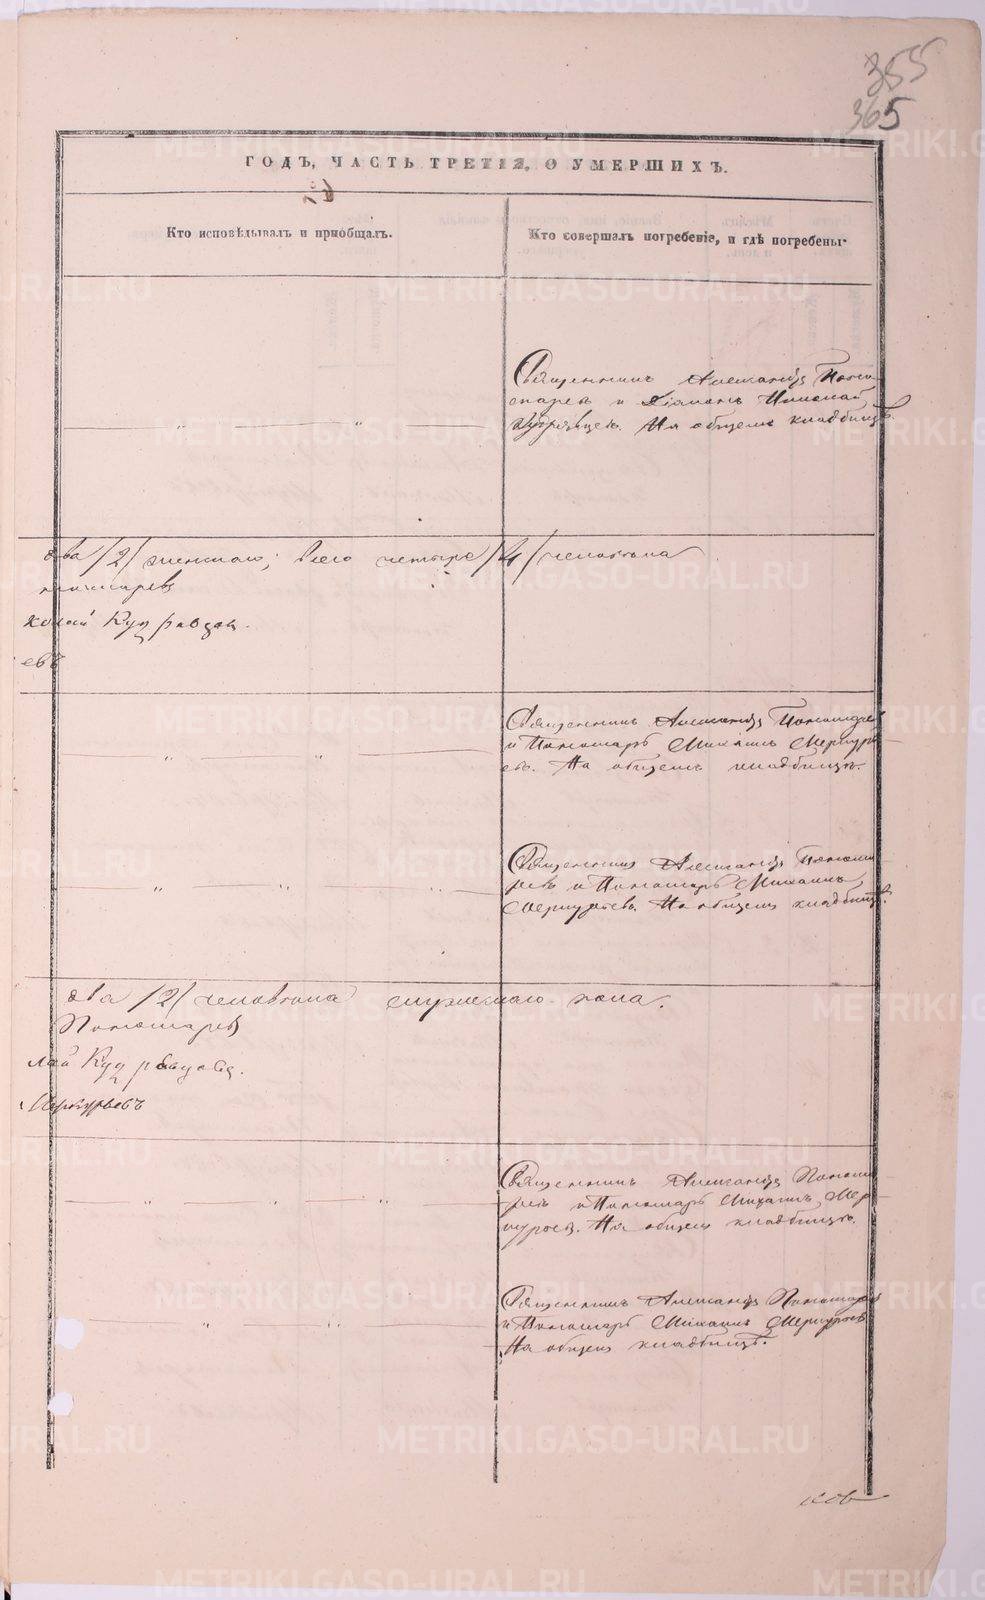 355
365
ГОДЪ, ЧАСТЬ ТРЕТІЯ, О УМЕРШИХЪ.
Кто исповѣдывалъ и пріобщалъ.
Кто совершалъ погребеніе, и гдѣ погребены.
Священникъ Александръ Поно
маревъ и Діаконъ Николай
Кудрявцевъ. На общемъ кладбищѣ.
два /2/ женскаго; всего четыре /4/ человѣка
номаревъ
колай Кудрявцев
евъ
Священникъ Александръ Пономарев
и Пономарь Михаилъ Меркурь
евъ. На общемъ кладбищѣ.
Священникъ Александръ Понома
ревъ и Пономарь Михаилъ
Меркурьевъ. На общемъ кладбищѣ.
два /2/ человѣка мужескаго пола.
Пономаревъ
лай Кудрявцевъ.
Меркурьевъ
Священникъ Александръ Понома
ревъ и Пономарь Михаилъ Мер
курьевъ. На общемъ кладбищѣ.
Священникъ Александръ Пономарев
и Пономарь Михаилъ Меркурьев
На общемъ кладбищѣ.
METRIKI.GASO-URAL.RU